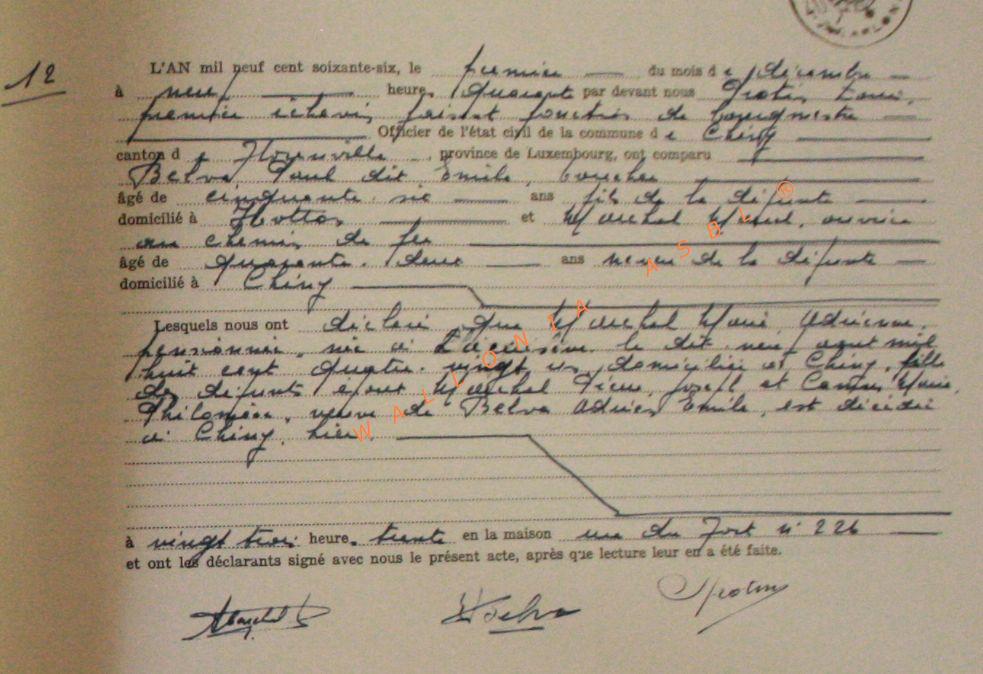 12
L'AN mil neuf cent soixante-six, le premier du mois de décembre
à neuf heures quarante par devant nous Louis,
premier échevin faisant fonctions de bourgmestre
Officier de l'état civil de la commune de Chiny
canton de Florenville, province de Luxembourg, ont comparu
Belva, Paul dit Emile, boucher
âgé de cinquante six ans fils de la défunte
domicilié à Hotton et Marchal Marcel, ouvrier
au chemin de fer
âgé de quarante-deux ans neveu de la défunte
domicilié à Chiny
Lesquels nous ont déclaré que Marchal Marie, Adrienne,
pensionnée, née à Lacuisine le dix neuf août mil
huit cent quatre-vingt domiciliée à Chiny, fille
des défunts époux Marchal Pierre Joseph et Marie,
Philomène, veuve de Belva Adrien Emile, est décédée
à Chiny, hier
à vingt trois heures trente en la maison rue du Fort n° 226
et ont les déclarants signé avec nous le présent acte, après que lecture leur en a été faite.
Belva
WALLONIA ASBL ®